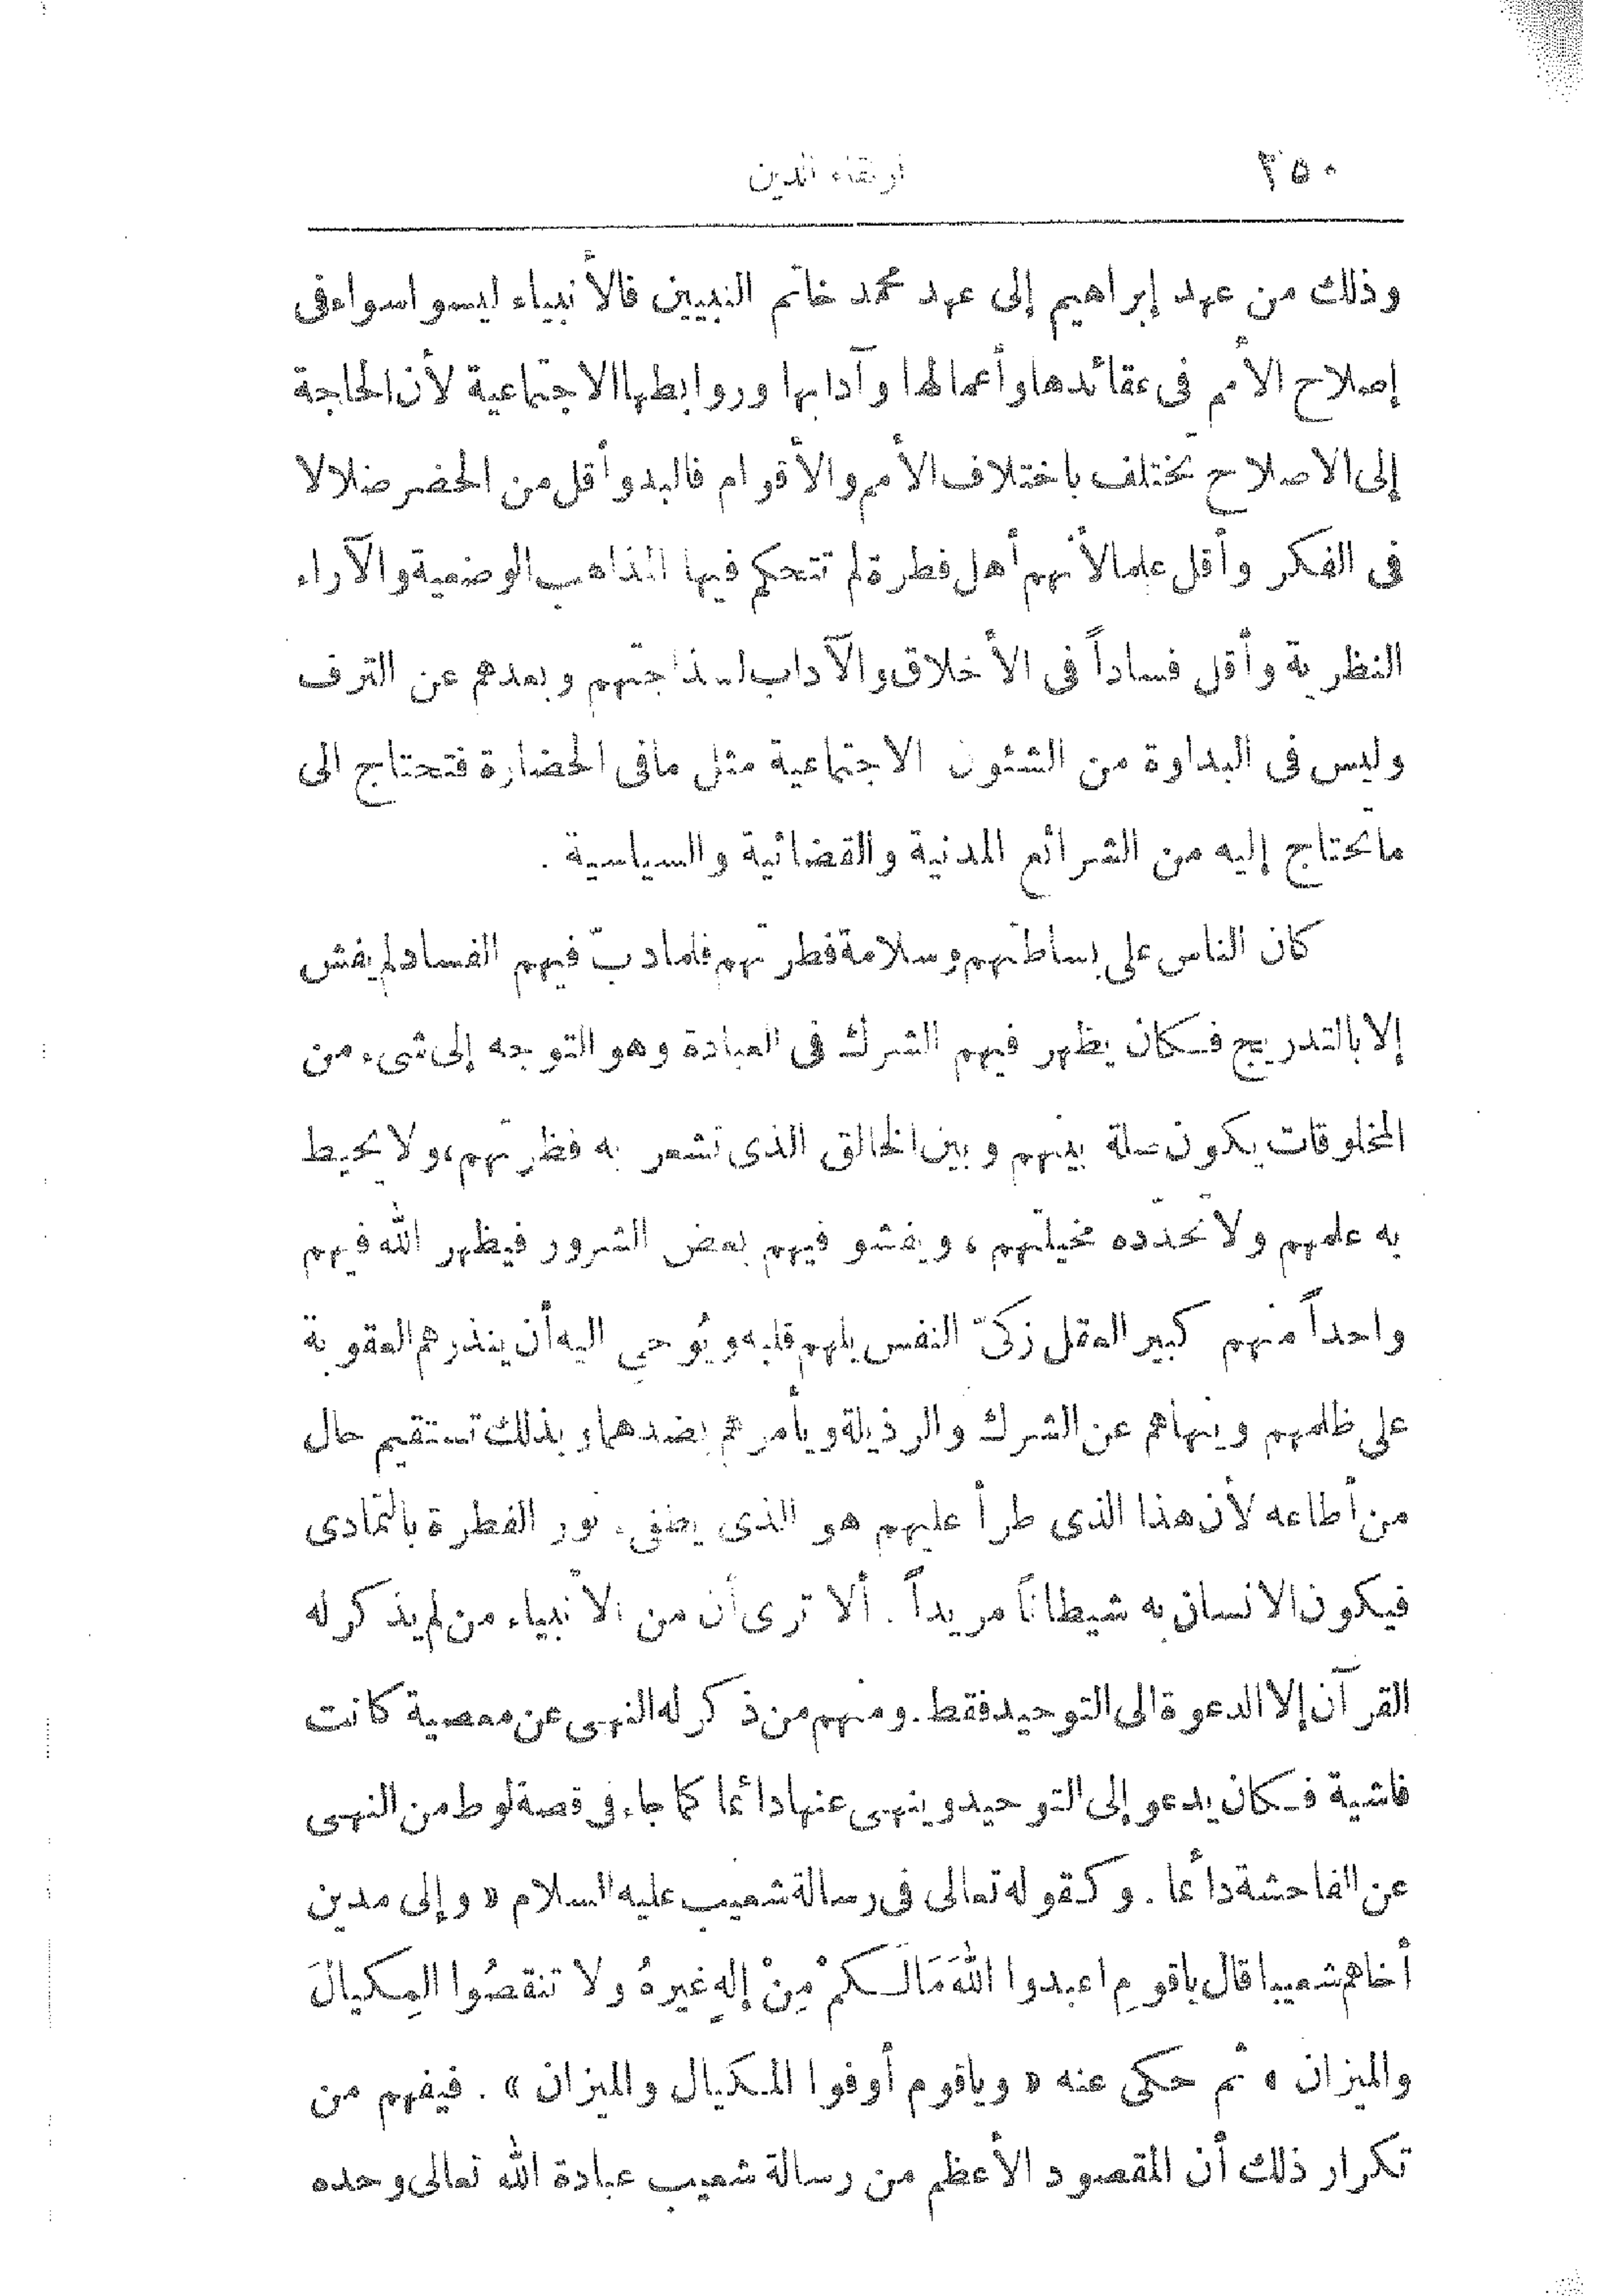 ٢٥٠ ارتقاء الدين
وذلك من عهد إبراهيم إلى عهد محمد خاتم النبيين فالأنبياء ليسوا سواء فى
إصلاح الأمم فى عقائدها وأعمالها وآدابها وروابطها الاجتماعية لأن الحاجة
إلى الاصلاح تختلف باختلاف الأمم والأقوام فالبدو أقل من الحضر ضلالا
فى الفكر وأقل علما لأنهم أهل فطرة لم تتحكم فيها المذاهب الوضعية والآراء
النظرية وأقل فساداً فى الأخلاق والآداب لسذاجتهم وبعدهم عن الترف
وليس فى البداوة من الشئون الاجتماعية مثل مافى الحضارة فتحتاج الى
ماتحتاج إليه من الشرائع المدنية والقضائية والسياسية .
كان الناس على بساطتهم وسلامة فطرتهم فلما دبّ فيهم الفساد لم يفش
إلا بالتدريج فكان يظهر فيهم الشرك فى العبادة وهو التوجه إلى شىء من
المخلوقات يكون صلة بينهم وبين الخالق الذى تشعر به فطرتهم، ولا يحيط
به علمهم ولا تحدّده مخيلتهم ، ويفشو فيهم بعض الشرور فيظهر الله فيهم
واحداً منهم كبير العقل زكىّ النفس يلهم قلبه ويُوحى اليه أن ينذرهم العقوبة
على ظلمهم وينهاهم عن الشرك والرذيلة ويأمرهم بضدهما وبذلك تستقيم حال
من أطاعه لأن هذا الذى طرأ عليهم هو الذى يطفىء نور الفطرة بالتمادى
فيكون الانسان به شيطاناً مريداً . ألا ترى أن من الأنبياء من لم يذكر له
القرآن إلا الدعوة الى التوحيد فقط . ومنهم من ذكر له النهى عن معصية كانت
فاشية فكان يدعو إلى التوحيد وينهى عنها دائما كما جاء فى قصة لوط من النهى
عن الفاحشة دائما . وكقوله تعالى فى رسالة شعيب عليه السلام « وإلى مدين
أخاهم شعيبا قال ياقومِ اعبدوا اللهَ مَالَكمْ مِنْ إلهٍ غيرهُ ولا تنقصُوا المِكيالَ
والميزان » ثم حكى عنه « وياقوم أوفوا المكيال والميزان » . فيفهم من
تكرار ذلك أن المقصود الأعظم من رسالة شعيب عبادة الله تعالى وحده